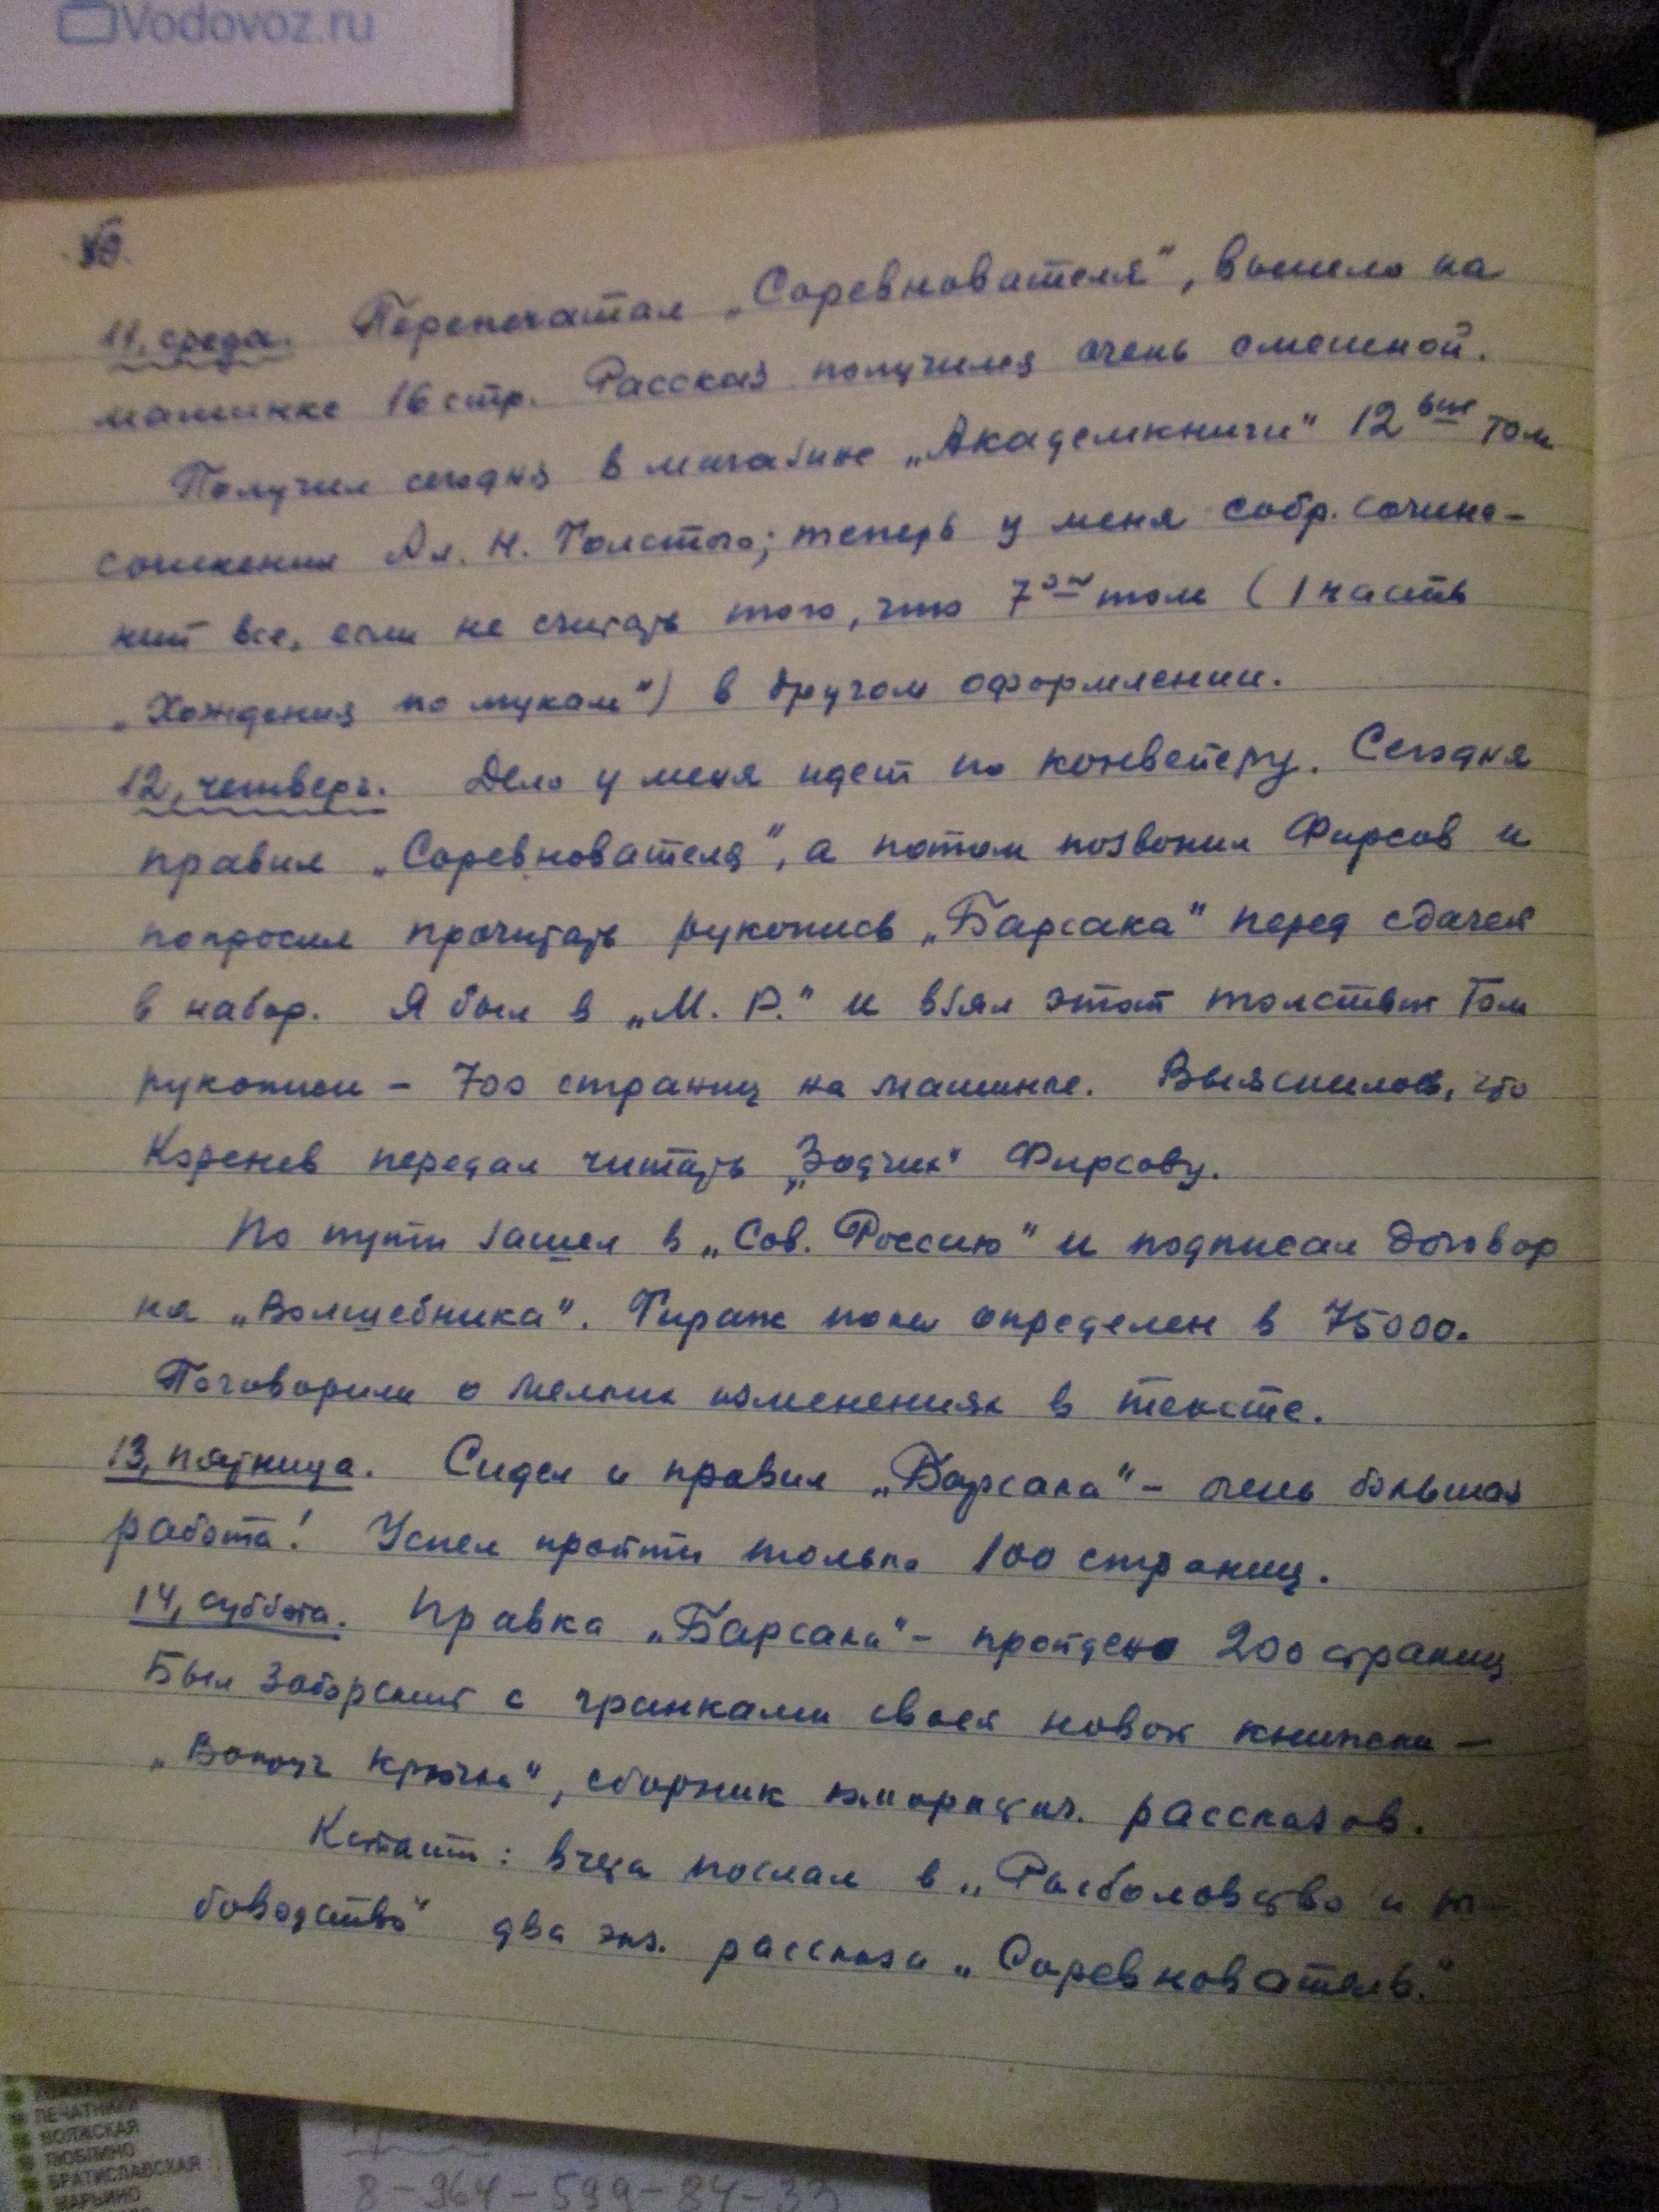 Vodovoz.ru
11, среда. Перепечатал „Соревнователя", вышло на
машинке 16 стр. Рассказ получился очень смешной.
Получил сегодня в магазине „Академкниги" 12 ый том
сочинения Ал. Н. Толстого; теперь у меня собр. сочине-
ний все, если не считать того, что 7 ой том (1 часть
„Хождения по мукам") в другом оформлении.
12, четверг. Дело у меня идет по конвейеру. Сегодня
правил „Соревнователя", а потом позвонил Фирсов и
попросил прочитать рукопись „Барсака" перед сдачей
в набор. Я был в „М. Р." и взял этот толстый том
рукописи – 700 страниц на машинке. Выяснилось, что
Коренев передал читать „Зодчих" Фирсову.
По пути зашел в „Сов. Россию" и подписал договор
на „Волшебника". Тираж пока определен в 75000.
Поговорили о мелких изменениях в тексте.
13, пятница. Сидел и правил „Барсака" – очень большая
работа! Успел пройти только 100 страниц.
14, суббота. Правка „Барсака" – пройдено 200 страниц
Был Заборский с гранками своей новой книжки —
„Вокруг крючка", сборник юмористич. рассказов.
Кстати: вчера послал в „Рыболовство и
боводство" два экз. рассказа „Соревнователь."
ПЕЧАТНИКИ
ВОЛЖСКАЯ
ЛЮБЛИНО
БРАТИСЛАВСКАЯ
МАРЬИНО
8-964-599-84-33